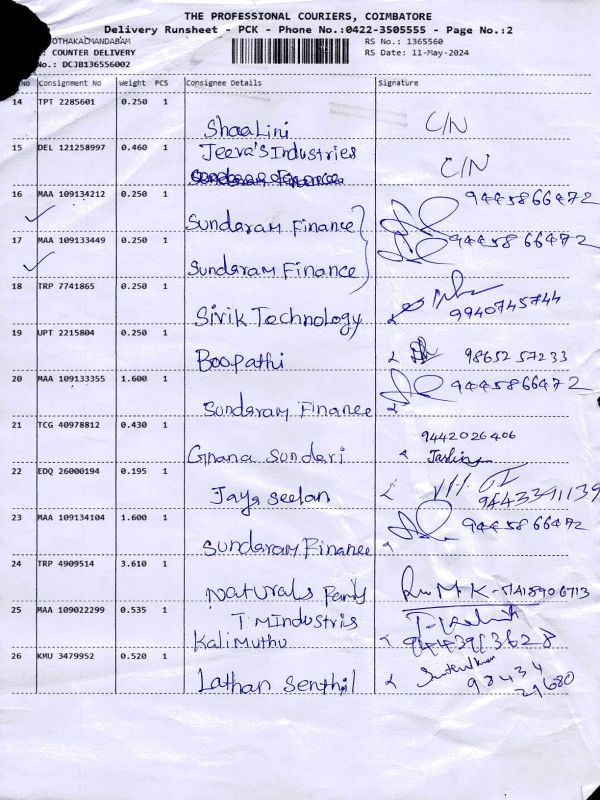 THE PROFESSIONAL COURIERS, COIMBATORE
Delivery Runsheet - PCK - Phone No.:0422-3505555 - Page No.:2
OTHAKALMANDABAM
: COUNTER DELIVERY
No.: DCJB136556002
RS No.: 1365560
RS Date: 11-May-2024
No Consignment No Weight PCS Consignee Details Signature
14 TPT 2285601 0.250 1
Shaalini C/N
15 DEL 121258997 0.460 1
Jeeva's Industries
C/N
16 MAA 109134212 0.250 1
Sundaram Finance 9445866472
17 MAA 109133449 0.250 1
Sundaram Finance 9445866472
18 TRP 7741865 0.250 1
Sivik Technology 9940745744
19 UPT 2215804 0.250 1
Boopathi 9865257233
20 MAA 109133355 1.600 1
Sundaram Finance 9445866472
21 TCG 40978812 0.430 1
Gnana Sundari 9442026406
22 EDQ 26000194 0.195 1
Jaya Seelan 9443391139
23 MAA 109134104 1.600 1
Sundaram Finance 9445866472
24 TRP 4909514 3.610 1
Naturals Family
25 MAA 109022299 0.535 1
T M Industris
Kalimuthu 9443913628
26 KMU 3479952 0.520 1
Lathan Senthil 98434
21680